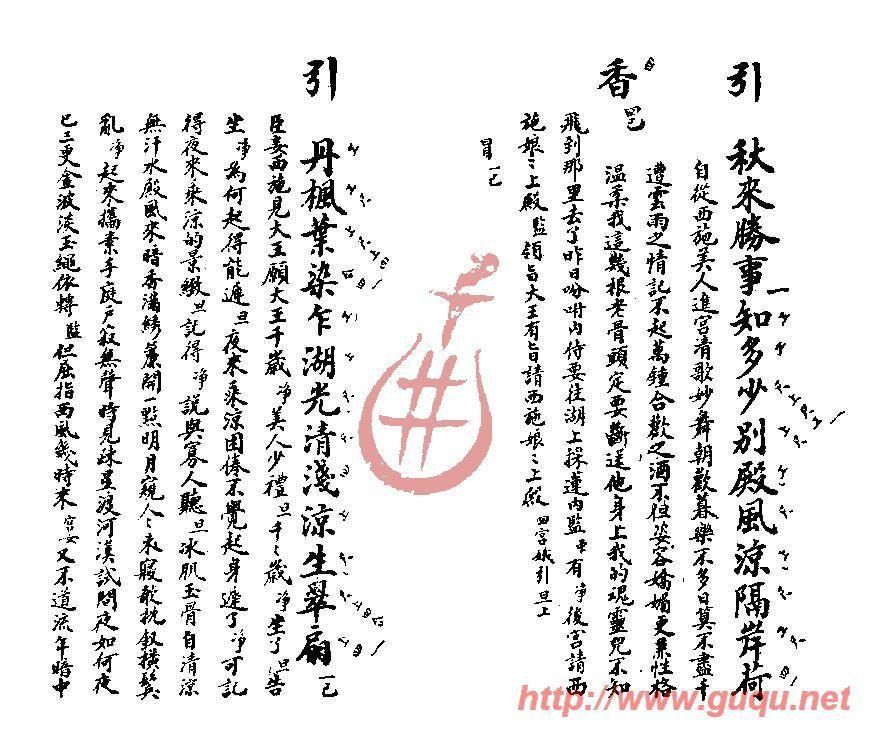 引 秋來勝事知多少別殿風涼隔岸荷
自從西施美人進宮清歌妙舞朝歡暮樂不多日算不盡千
遭雲雨之情記不起萬鍾合歡之酒不但姿容嬌媚更兼性格
温柔我這幾根老骨頭定要斷送他身上我的魂靈兒不知
香
飛到那里去了昨日吩咐内侍要往湖上採蓮内監 有 淨 後宮請西
施娘〻上殿 監 領旨大王有旨請西施娘〻上殿 四宮娥引旦上
引 丹楓葉染乍湖光清淺涼生翠扇
臣妾西施見大王願大王千歲 淨 美人少禮 旦 千〻歲 淨 生了 旦 告
生 淨 為何起得能遲 旦 夜來乘涼困倦不覺起身遲了 淨 可記
得夜來乘涼的景緻 旦 記得 淨 說與寡人聽 旦 冰肌玉骨自清涼
無汗水殿風來暗香滿綉簾開一點明月窺人〻未寢欹枕釵橫鬢
亂 淨 起來攜素手庭戶寂無聲時見疎星渡河漢試問夜如何夜
已三更金波淡玉繩低轉 監 但屈指西風幾時來 又不道流年暗中
http://www.guqu.net